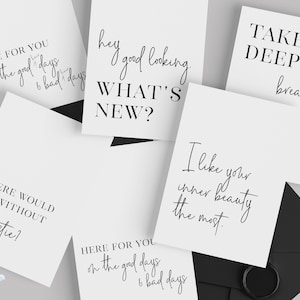 E FOR YOU
the good days
& bad days
hey
good looking
WHAT'S
NEW?
TAKE
DEEP
brea
I like your
inner beauty
the most.
ERE WOULD
WITHOUT
tie?
HERE FOR YOU
on the good days
& bad days